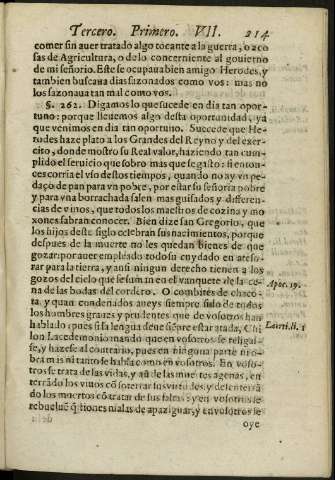 Tercero. Primero. VII. 214
comer sin auer tratado algo tocante a la guerra, o a co
sas de Agricultura, o de lo concerniente al gouierno
de mi señorio. Este se ocupaua bien amigo Herodes, y
tambien buscaua dias sazonados como vos: mas no
los sazonaua tan mal como vos.
§. 262. Digamos lo que sucede en dia tan opor-
tuno: porque lleuemos algo desta oportunidad, ya
que venimos en dia tan oportuno. Succede que He-
rodes haze plato a los Grandes del Reyno y del exer-
cito, donde mostrò su Real valor, haziendo tan cum-
plido el seruicio que sobro mas que se gasto: si enton-
ces corria el vso destos tiempos, quando no ay vn pe-
daço de pan para vn pobre, por estar su señoria pobre
y para vna borrachada salen mas guisados y differen-
cias de vinos, que todos los maestros de cozina y mo
xones sabran conocer. Bien dize san Gregorio, que
los hijos deste siglo celebran sus nacimientos, porque
despues de la muerte no les quedan bienes de que
gozar: por auer empleado todo su cuydado en ateso-
rar para la tierra, y ansi ningun derecho tienen a los
gozos del cielo que se suman en el vanquete de la ce-
na de las bodas del cordero. O combites de chaco-
ta, y quan condenados aueys siempre sido de todos
los hombres graues y prudentes que de vosotros han
hablado; pues si la lengua deue siẽpre estar atada, Chi
lon Lacedemonio mando que en vosotros se religas-
se, y hazese al contrario, pues en ninguna parte se
obra mas ni tanto se habla como en vosotros. En voso-
tros se trata de las vidas, y aũ de las muertes agenas, en
terrãdo los viuos cõ soterrar sus virtudes, y desenterrã
do los muertos cõ tratar de sus faltas: y en vosotros se
rebuelue q̃stiones nialas de apaziguar, y en vosotros se
oye
Apoc. 19.
Laerti. li. 1